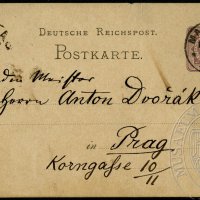 DEUTSCHE REICHSPOST.
POSTKARTE.
den Meister
Herrn Anton Dvořák
in Prag
Korngasse 10/11